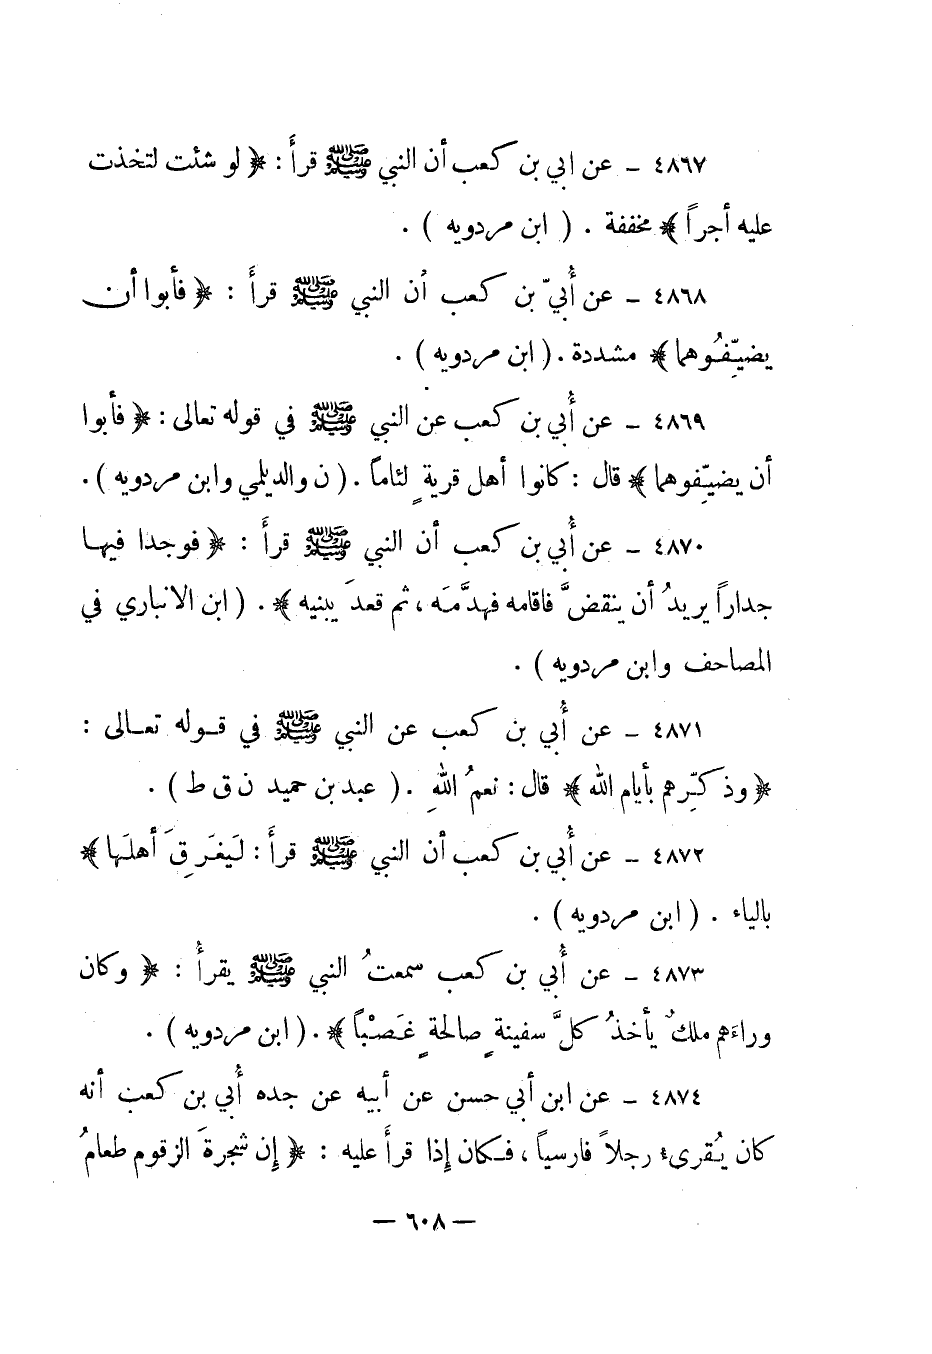 ٤٨٦٧ ـ عن ابي بن كعب أن النبي ﷺ قرأ : ﴿ لو شئت لتخذت
عليه أجراً ﴾ مخففة . ( ابن مردويه ) .
٤٨٦٨ ـ عن أُبيّ بن كعب أن النبي ﷺ قرأ : ﴿ فأبوا أن
يضيّفُوهما ﴾ مشددة . ( ابن مردويه ) .
٤٨٦٩ ـ عن أُبي بن كعب عن النبي ﷺ في قوله تعالى : ﴿ فأبوا
أن يضيّفوهما ﴾ قال : كانوا أهل قريةٍ لئاماً . ( ن والديلمي وابن مردويه ) .
٤٨٧٠ ـ عن أُبي بن كعب أن النبي ﷺ قرأ : ﴿ فوجدا فيها
جداراً يريدُ أن ينقضَّ فاقامه فهدَّمَه ، ثم قعدَ يبنيه ﴾ . ( ابن الانباري في
المصاحف وابن مردويه ) .
٤٨٧١ ـ عن أُبي بن كعب عن النبي ﷺ في قوله تعالى :
﴿ وذكِّرهم بأيام الله ﴾ قال : نعمُ اللهِ . ( عبد بن حميد ن ق ط ) .
٤٨٧٢ ـ عن أُبي بن كعب أن النبي ﷺ قرأ : لَيغَرِقَ أهلَها ﴾
بالياء . ( ابن مردويه ) .
٤٨٧٣ ـ عن أُبي بن كعب سمعتُ النبي ﷺ يقرأ : ﴿ وكان
وراءَهم ملكٌ يأخذُ كلَّ سفينةٍ صالحةٍ غَصْباً ﴾ . ( ابن مردويه ) .
٤٨٧٤ ـ عن ابن أبي حسن عن أبيه عن جده أُبي بن كعب أنه
كان يُقرىء رجلاً فارسياً ، فكان إذا قرأ عليه : ﴿ إن شجرةَ الزقوم طعامُ
— ٦٠٨ —